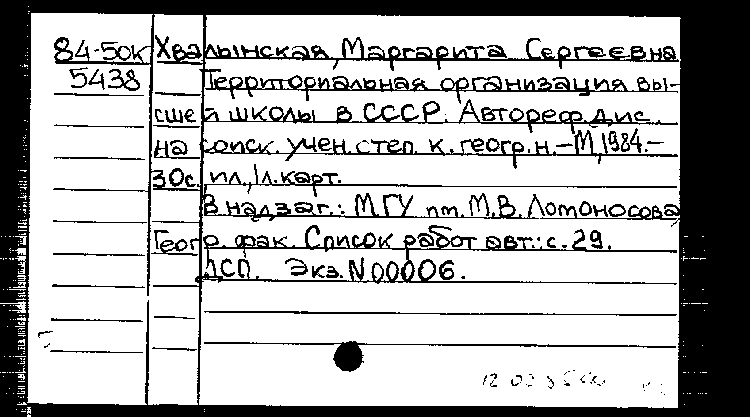 84-50к Хвалынская, Маргарита Сергеевна
5438 Территориальная организация вы-
сшей школы в СССР. Автореф. дис.
на соиск. учен. степ. к. геогр. н. – М, 1984. –
30с., ил., 1л. карт.
В надзаг.: МГУ им. М.В. Ломоносова
Геогр. фак. Список работ авт.: с. 29.
ДСП. Экз. N 00006.